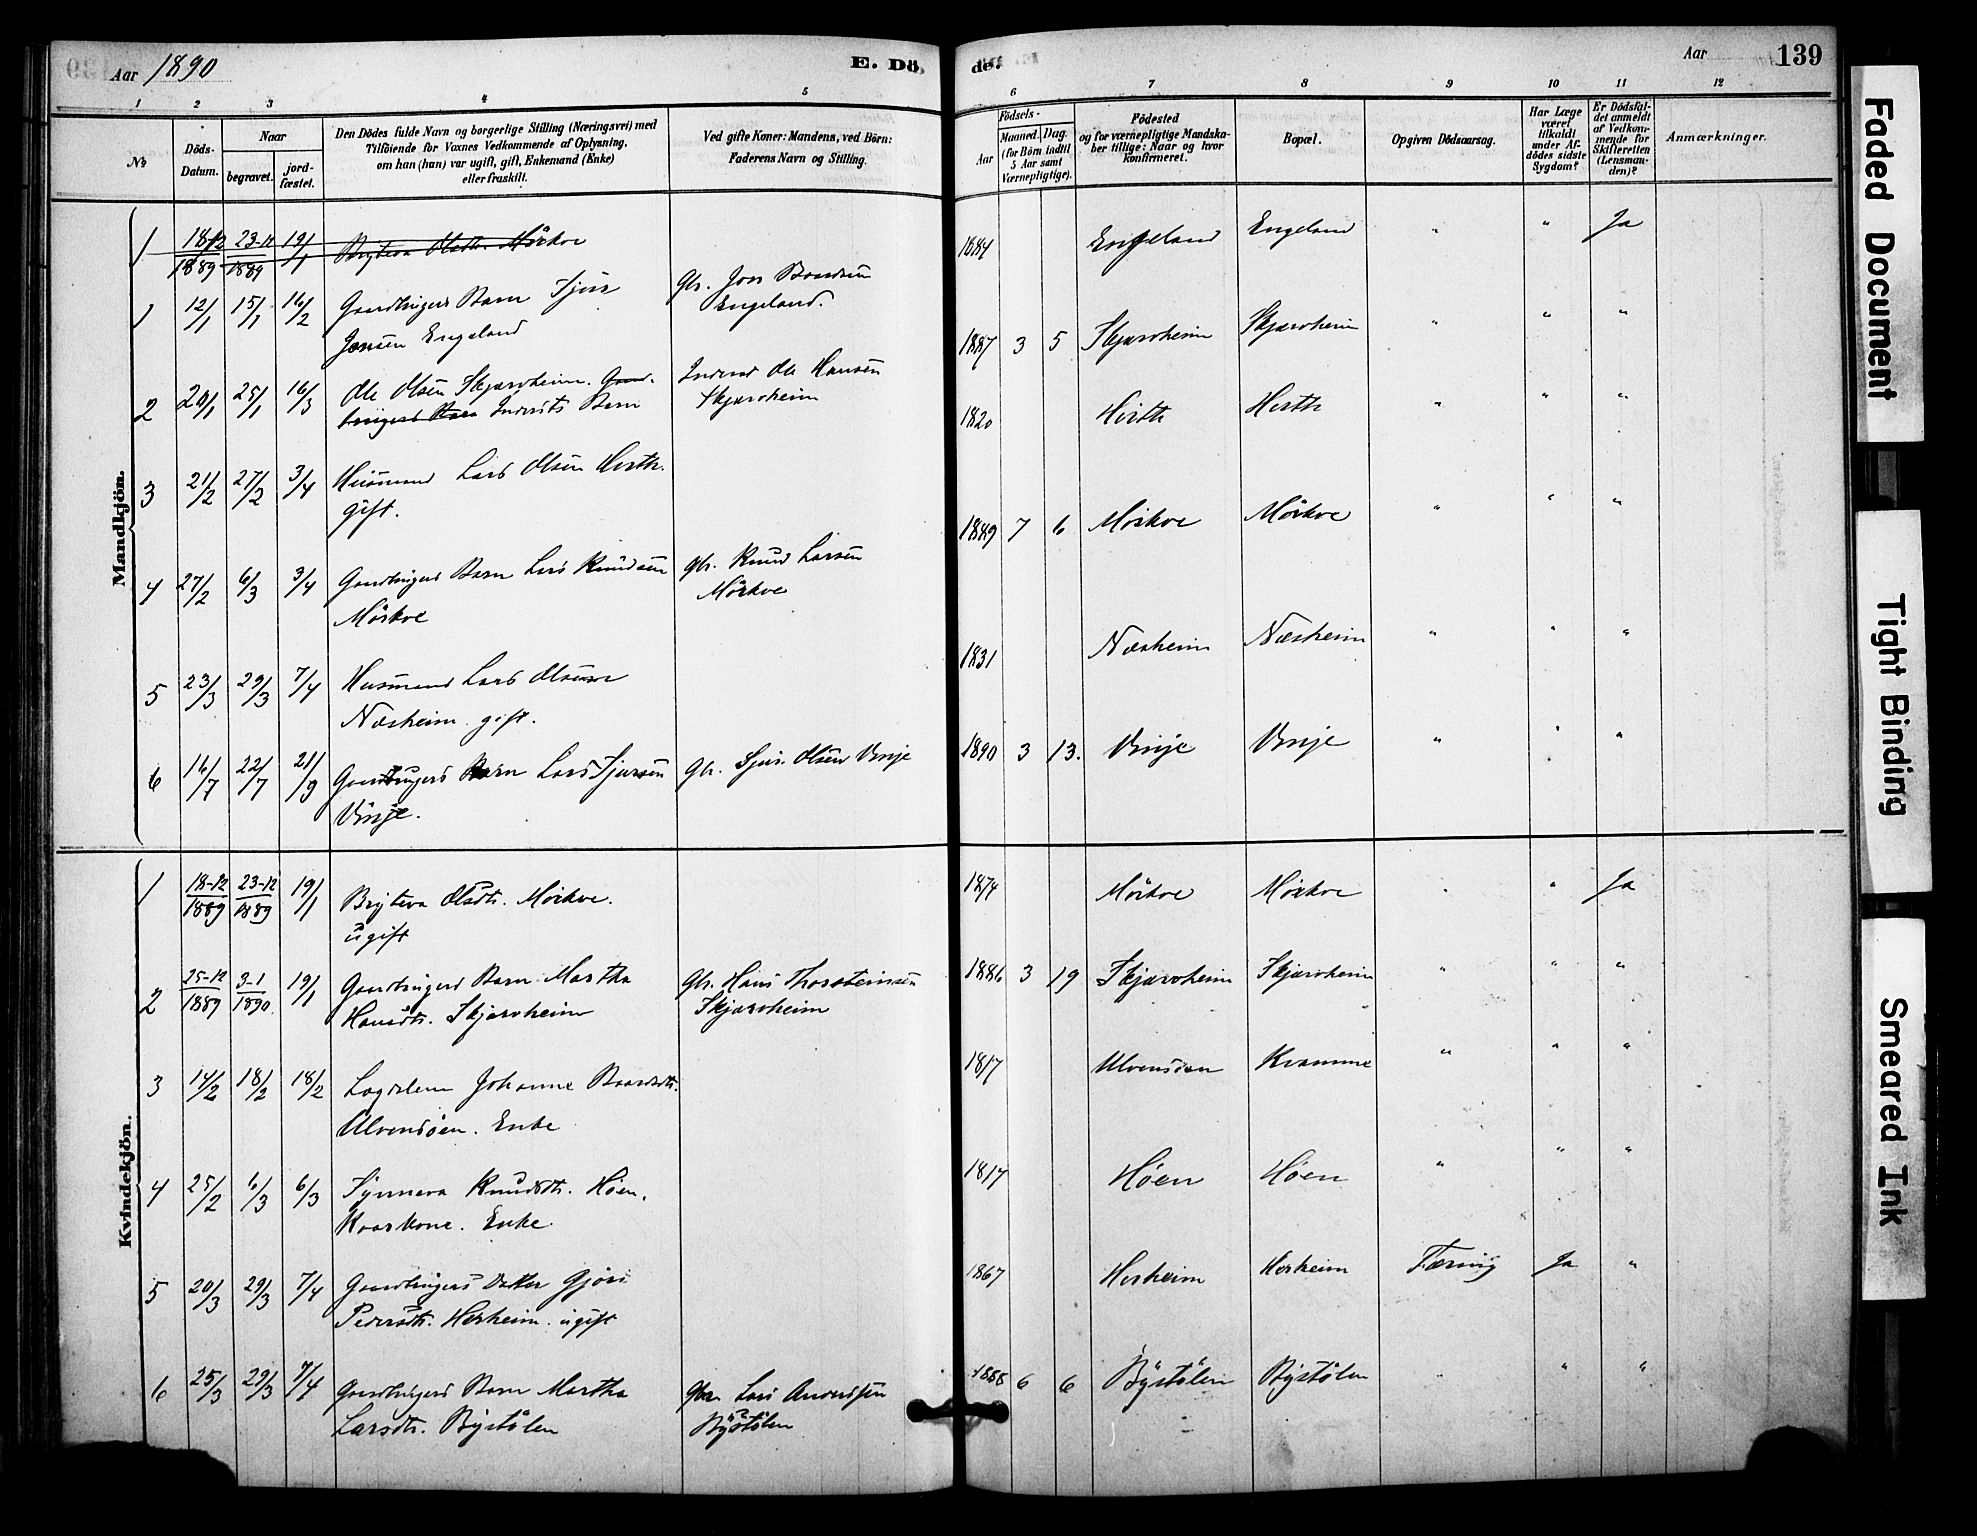 Aar 1890
E. Dö
de.
Aar
139
1 2 3 4 5 6 7 8 9 10 11 12
No
Döds-
Datum.
Naar
begravet.
jord-
fæstet.
Den Dödes fulde Navn og borgerlige Stilling (Næringsvei) med
Tilföiende for Voxnes Vedkommende af Oplysning,
om han (hun) var ugift, gift, Enkemand (Enke)
eller fraskilt.
Ved gifte Koner: Mandens, ved Börn:
Faderens Navn og Stilling.
Födsels-
Aar
Maaned. Dag.
(for Börn indtil
5 Aar samt
Værnepligtige).
Födested
og for værnepligtige Mandska-
ber tillige: Naar og hvor
konfirmeret.
Bopæl.
Opgiven Dödsaarsag.
Har Læge
været
tilkaldt
under Af-
dödes sidste
Sygdom?
Er Dödsfal-
det anmeldt
af Vedkom-
mende for
Skifteretten
(Lensman-
den)?
Anmærkninger.
Mandkjön.
1 18/12 1889 23-12 1889 19/1 Bryteva Olsdtr. Mörkve
1 12/1 15/1 16/2 Gaardbrugers Barn Sjur
Jonsen Engeland
Gbr. Jon Baardsen
Engeland.
1884 Engeland Engeland " " Ja
2 20/1 25/1 16/3 Ole Olsen Skjervheim. Gaard-
brugers Barn Indersts Barn
Inderst Ole Hansen
Skjerveheim
1887 3 5 Skjærvheim Skjærvheim " " "
3 21/2 27/2 3/4 Husmand Lars Olsen Hirth.
gift.
1820 Hirth Hirth " " "
4 27/2 6/3 3/4 Gaardbrugers Barn Lars Knudsen
Mörkve
Gbr. Knud Larsen
Mörkve
1889 7 6 Mörkve Mörkve " " "
5 23/3 29/3 7/4 Husmand Lars Olsen
Næsheim. gift.
1831 Næsheim Næsheim " " "
6 16/7 22/7 21/9 Gaardbrugers Barn Lars Sjursen
Vinje.
Gbr. Sjur Olsen Vinje
1890 3 13. Vinje Vinje " " "
Kvindekjön.
1 18-12 1889 23-12 1889 19/1 Bryteva Olsdtr. Mörkve.
ugift
1874 Mörkve Mörkve " " Ja
2 25-12 1889 3-1 1890. 19/1 Gaardbrugers Barn Martha
Hansdtr. Skjærvheim
Gbr. Hans Thorsteinsen
Skjærvheim
1886 3 19 Skjærvheim Skjærvheim " " "
3 14/2 18/2 18/2 Lægdslem Johanne Baardsdtr.
Ulvensöen. Enke
1817 Ulvensöen Kvamme " " "
4 25/2 6/3 6/3 Synneva Knudsdtr. Höen.
Kaarkone. Enke.
1817 Höen Höen " " "
5 20/3 29/3 7/4 Gaardbrugers Datter Gjöri
Pedersdtr. Herheim. ugift
1867 Herheim Herheim Tæring Ja "
6 25/3 29/3 7/4 Gaardbrugers Barn Martha
Larsdtr. Bystölen
Gbr. Lars Andersen
Bystölen
1888 6 6 Bystölen Bystölen " " "
Faded Document
Tight Binding
Smeared Ink